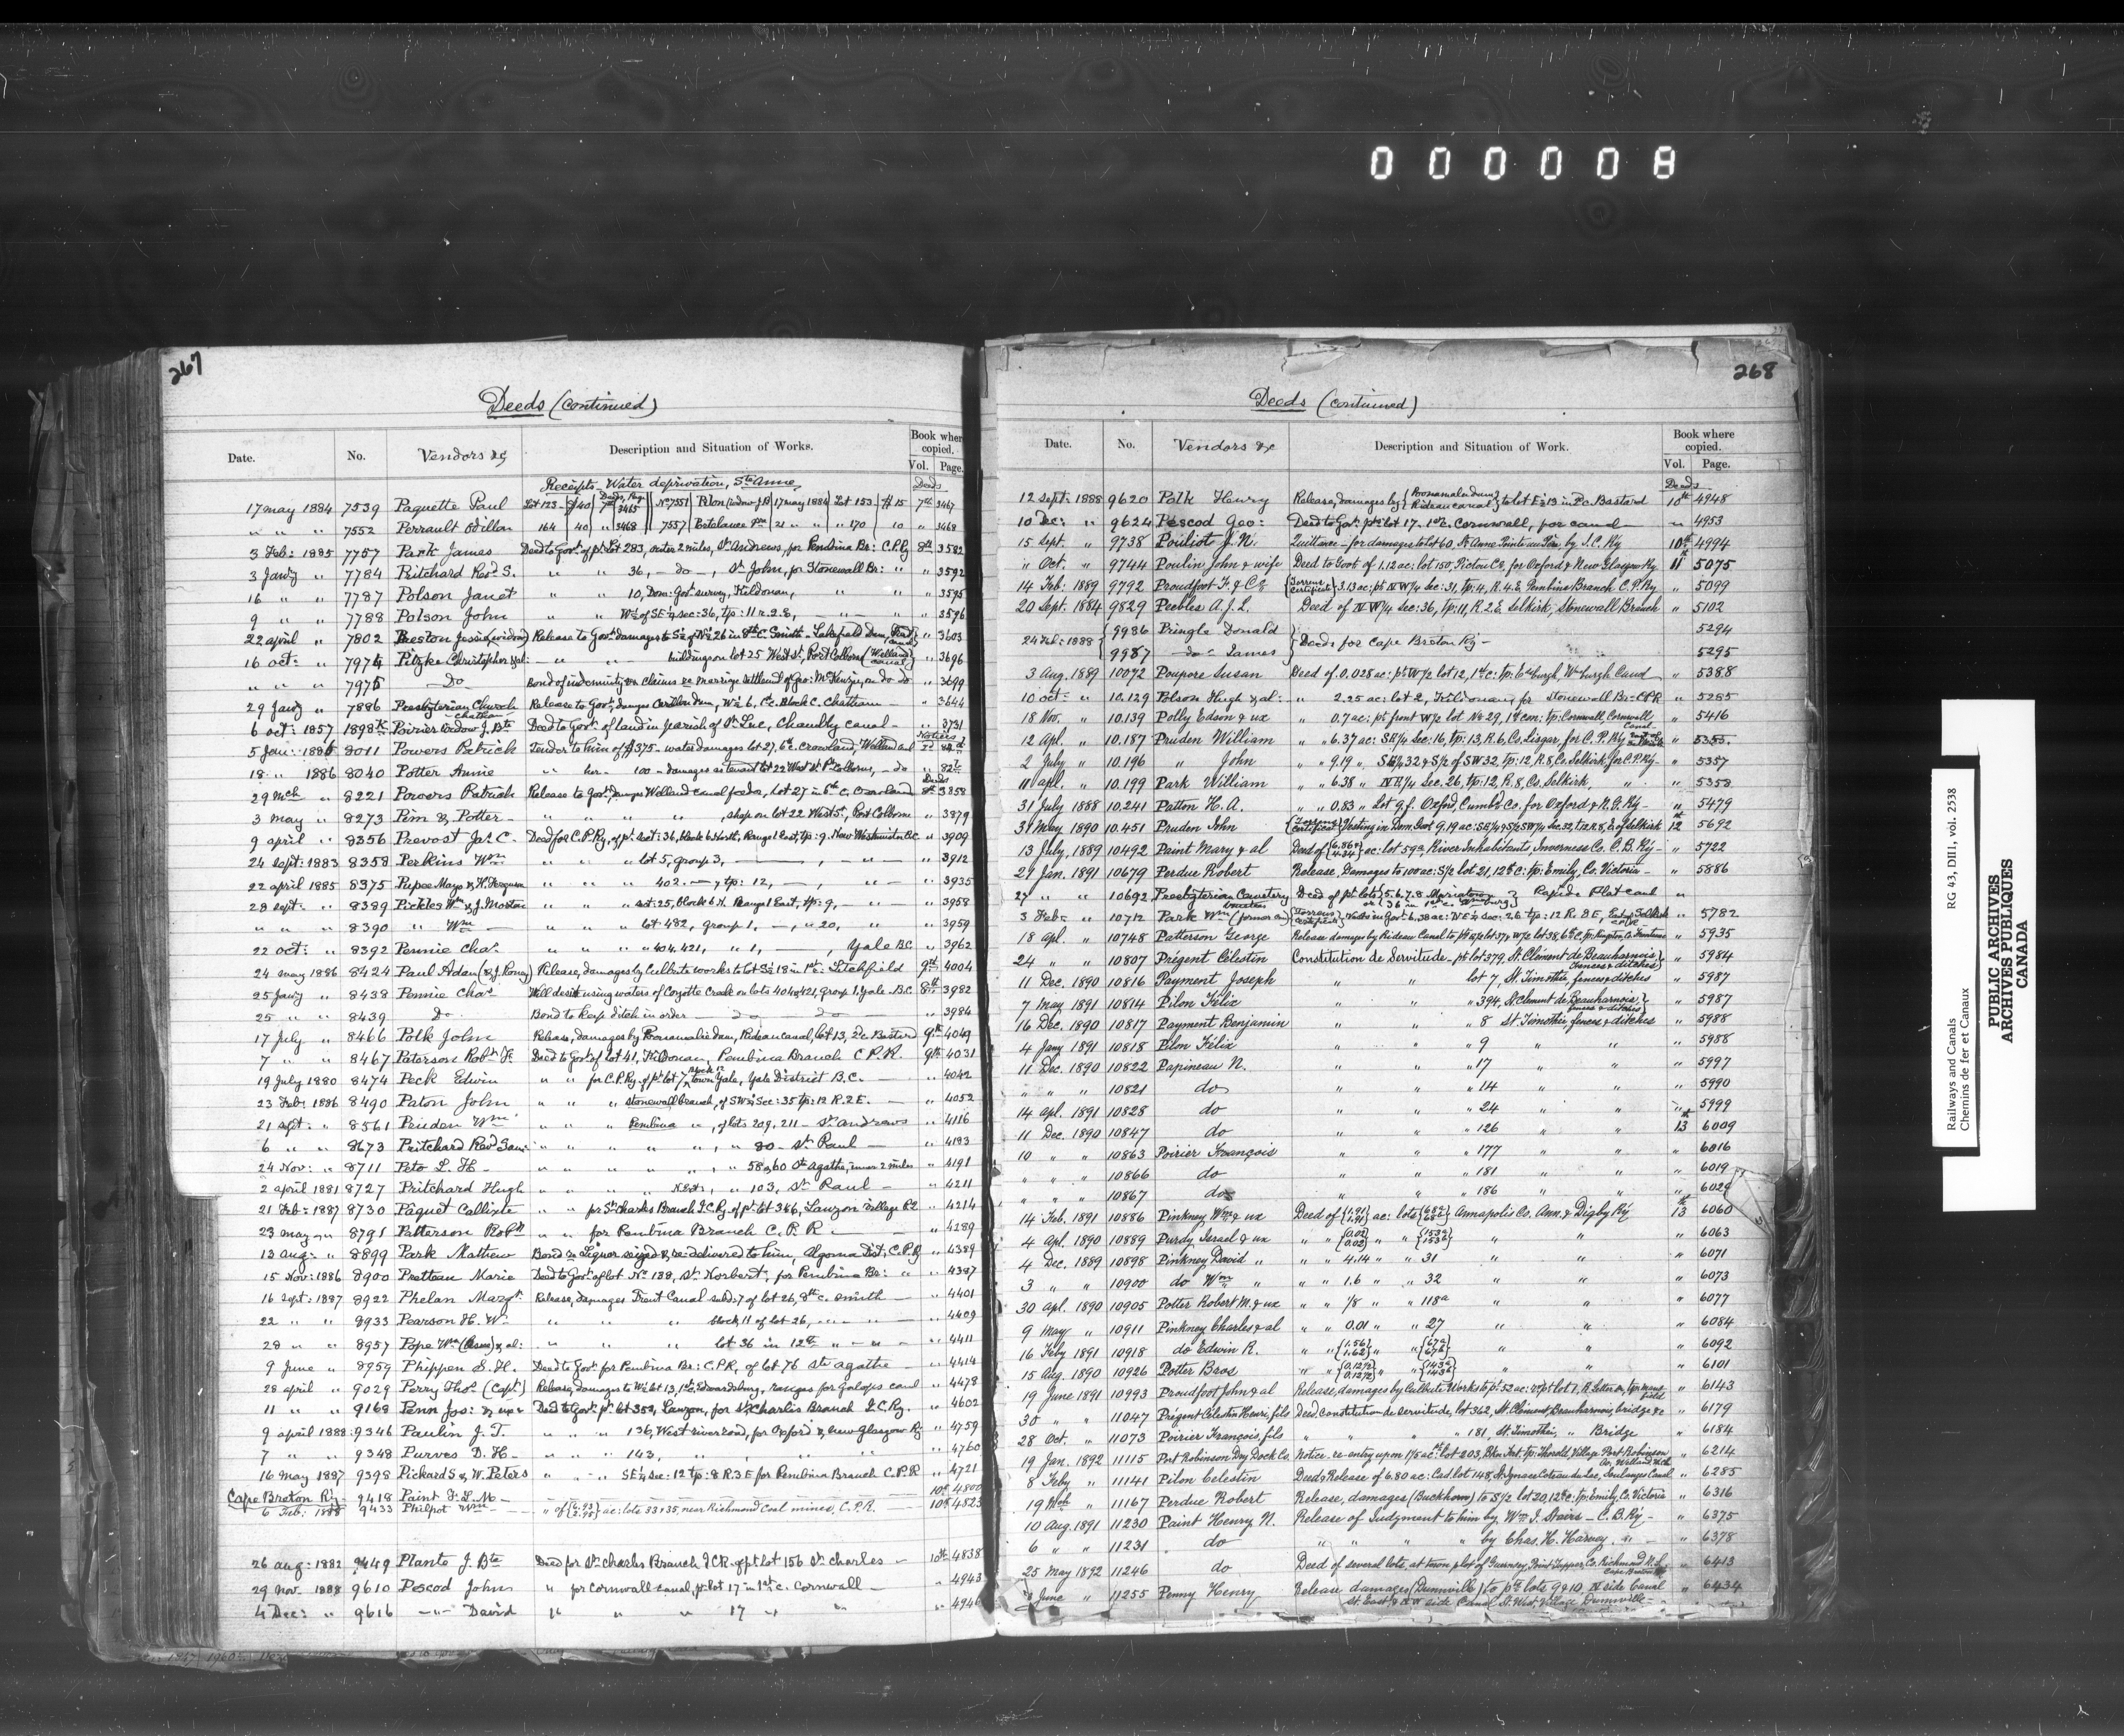 000008
267
Deeds (continued)
Date. No. Vendors &c Description and Situation of Works. Book where copied. Vol. Page.
Receipts Water deprivation, Ste Anne, Deeds
17 may 1884 7539 Paquette Paul Lot 123 $40 7th 3465 No 7551 Pilon (widow J.B 17 may 1884 Lot 153 $15 7th 3467
" " " 7552 Perrault Odillon 164 40 " 3468 7557 21 " " " 170 10 " 3468
3 Feb: 1885 7757 Park James Deed to Govt. of pt. lot 283, outer 2 miles, St. Andrews, for Pembina Br: C.P.Ry 8th 3582
3 Jan'y " 7784 Pritchard Revd. S. " " 36, - do -, St John, for Stonewall Br: " " 3592
16 " " 7787 Polson Janet " " 10, Dom: Govt. survey, Kildonan, " " " 3595
9 " " 7788 Polson John " " W½ of SE¼ sec: 36, tp: 11 r. 2.E, " " " 3596
22 april " 7802 Preston Jessie (widow) Release to Govt. damages to S½ of N½ 26 in 8th C. Smith - Lakefield Dam, " 3603
16 oct: " 7974 Pitzke Christopher & al: " " buildings on lot 25 West St, Port Colborne (Welland canal) " 3696
" " " 7975 Do Bond of indemnity claims marriage settlemt of Geo: McKenzie, do do " 3699
29 Jan'y " 7886 Presbyterian Church Chatham Release to Govt, damages Carillon Dam, W½ 6, 1st c. Block C. Chatham " 3644
6 oct: 1857 1898 Poirier widow J. Bte Deed to Govt. of land in parish of St. Luc, Chambly canal - " 3731
5 Jan: 1886 8011 Powers Patrick Tender to him of $375 - water damages lot 27, 6th c. Crowland, Welland canal Notices
18 " 1886 8040 Potter Annie " her - 100 - damages as tenant lot 22 West St. Pt. Colborne, - do " 82
29 Mch " 8221 Powers Patrick Release to Govt, damages Welland canal feeder, lot 27 in 5th c. Crowland Deeds 8th 3858
3 May " 8273 Pim & Potter - " " " " , shop on lot 22 West St., Port Colborne " 3879
9 april " 8356 Prevost Jas. C. Deed for C.P.Ry, of pt. sect: 36, block 6 North, Range 1 East, tp: 9. New Westminster B.C " 3909
24 sept: 1883 8358 Perkins Wm " " " lot 5, group 3, " 3912
22 april 1885 8375 Pupee Mayo & H. Ferguson " " " 402. - , tp: 12, " 3935
28 sept: " 8389 Pickles Wm & J. Morton " " " sct: 25, block 6 N. Range 1 East, tp: 9, " 3958
" " " 8390 " Wm " " " lot 482, group 1, " 20, " " 3959
22 oct: " 8392 Pennie Chas. " " " " 404, 421, " 1, Yale B.C " 3962
24 may 1886 8424 Paul Adam (& J. Romay) Release, damages by Culbute works to lot S½ 18 in 1st c: Litchfield 9th 4004
25 Jan'y " 8438 Pennie Chas. Will desist using waters of Coyotte Creek on lots 404 & 421, group 1. Yale B.C. 8th 3982
25 " " 8439 Do Bond to keep ditch in order do do " 3984
17 July " 8466 Polk John Release, damages by Poonamalie dam, Rideau canal, lot 13, 2 c Bastard 9th 4049
7 " " 8467 Paterson Robt. F. Deed to Govt. of lot 41, Kildonan, Pembina Branch C.P.R. 9th 4031
19 July 1880 8474 Peck Edwin " " for C.P.Ry. of pt. lot 7 block 12 town Yale, Yale District B.C. - " 4042
23 Feb: 1886 8490 Paton John " " " Stonewall branch, of SW¼ sec: 35 tp: 12 R. 2 E. - " 4052
21 sept: " 8561 Pruden Wm " " " Pembina " , of lots 209, 211 - St. Andrews " 4116
6 " " 8673 Pritchard Revd Saml " " " " " , " 80 - St. Paul - " 4183
24 Nov: " 8711 Peto L. H - " " " " " , " 58 & 60 Ste Agathe, inner 2 miles " 4191
2 april 1881 8727 Pritchard Hugh " " " " , " 103, St. Paul - " 4211
21 Feb: 1887 8730 Paquet Callixte " " for St. Charles Branch I.C.Ry. of pt. lot 386, Lauzon village P.Q " 4214
23 may " 8791 Patterson Robt " " for Pembina Branch C.P.R. " 4289
12 aug: " 8899 Park Mathew Bond re Liquor seized & re-delivered to him, Algoma Dist, C.P.R. " 4389
15 Nov: 1886 8900 Pretteau Marie Deed to Govt. of lot No. 138, St. Norbert, for Pembina Br: " " 4387
16 sept: 1887 8922 Phelan Margt. Release, damages Trent Canal subd: 7 of lot 26, 8th c. Smith - " 4401
22 " " 8933 Pearson H. W. " " " block 11 of lot 26, " " " 4409
28 " " 8957 Pope Wm & al: " " " lot 36 in 12th " " " 4411
9 June " 8959 Phippen S. H. Deed to Govt. for Pembina Br: C.P.R, of lot 76 Ste Agathe - " 4414
28 april " 9029 Perry Thos. (Capt.) Release, damages to W½ lot 13, 1st c. Edwardsburg, for Galops canal " 4478
11 " " 9168 Penn Jos: & ux: Deed to Govt. pt. lot 352, Lauzon, for St. Charles Branch I.C.Ry. " 4602
9 april 1888 9346 Paulin J. T. " " " 136, West river road, for Oxford & New Glasgow Ry " 4759
7 " " 9348 Purves D. H. - " " " 143, " " 4760
16 May 1887 9398 Pickard S & W. Peters " " " SE¼ Sec: 12 tp: 8 R. 3 E for Pembina Branch C.P.R " 4721
Cape Breton Ry - 9418 Paint F. L. M - 10th 4800
6 Feb: 1888 9433 Philpot Wm " of {6.93 2.95} ac: lots 33 & 35, near Richmond Coal mines, C.P.R. 10th 4823
26 aug: 1882 9449 Plante J. Bte Deed for St. Charles Branch ICR of pt lot 156 St. Charles - 10th 4838
29 Nov. 1888 9610 Pescod John " for Cornwall canal, pt. lot 17 in 1st c. Cornwall - " 4943
4 Dec: " 9616 " David " " " 17 " " " 4946
268
Deeds (continued)
Date. No. Vendors &c Description and Situation of Work. Book where copied. Vol. Page.
Deeds
12 sept: 1888 9620 Polk Henry Release, damages by {Poonamalie dam Rideau canal} to lot E½ 13 in 2 c. Bastard 10th 4948
10 Dec: " 9624 Pescod Geo: Deed to Govt. pt. lot 17. 1st c. Cornwall, for canal " 4953
15 Sept. " 9738 Pouliot J. N. Quittance - for damages to lot 60, St. Anne Pointe au Père, by I.C. Ry 10th 4994
" Oct. " 9744 Poulin John & wife Deed to Govt. of 1.12 ac: lot 150, Pictou Co., for Oxford & New Glasgow Ry 11th 5075
14 Feb: 1889 9792 Proudfoot F. & Co {Torrens certificate} 3.13 ac: pt. N W¼ Sec: 31, tp: 4, R. 4. E. Pembina Branch C.P.Ry " 5099
20 Sept. 1884 9829 Peebles A. J. L. Deed of N W¼ Sec: 36, tp: 11, R. 2 E. Selkirk, Stonewall Branch " 5102
24 Feb: 1888 {9986 Pringle Donald} Deeds for Cape Breton Ry - 5294
{9987 - do - James} 5295
3 Aug. 1889 10072 Poupore Susan Deed of 0.028 ac: pt. W½ lot 12, 1st c: tp: Edwburgh Wmburgh Canal " 5388
10 oct: " 10.129 Polson Hugh & al: " " 2.25 ac: lot 2, Kildonan, for Stonewall Br: CPR " 5285
18 Nov. " 10.139 Polly Edson & ux " " 0.7 ac: pt. front W½ lot No. 29, 1st con: tp: Cornwall, Cornwall Canal " 5416
12 Apl. " 10.187 Pruden William " " 6.37 ac: SE¼ Sec: 16, tp: 13, R. 6, Co. Lisgar, for C. P. Ry " 5353.
2 July " 10.196 " John " " 9.19 " SE¼ 32 & S½ of SW 32, tp: 12, R. 8, Co. Selkirk, for C.P.Ry - " 5357
11 apl. " 10.199 Park William " " 6.38 " N E¼ Sec. 26, tp: 12, R. 8, Co. Selkirk, " " 5358
31 July 1888 10.241 Patton H. A. " " 0.83 " Lot 9, f. Oxford, Cumb'd Co. for Oxford & N.G. Ry - " 5479
31 May 1890 10.451 Pruden John {Torrens certificate} Vesting in Dom. Govt. 9.19 ac: SE¼ & S½ SW¼ Sec. 32, t 12 R. 8, E. of Selkirk 12th 5692
13 July, 1889 10492 Paint Mary & al Deed of {6.86 & 4.34} ac: lot 59a, River Inhabitants, Inverness Co. C.B. Ry - " 5722
27 Jan. 1891 10679 Perdue Robert Release, Damages to 100 ac: S½ lot 21, 12th C: tp: Emily, Co. Victoria - " 5886
27 " " 10692 Presbyterian Cemetery trustees Deed of pt. lots {5. 6. 7. 8 Mariatown or 36 in 1st c. Wmsburg} Rapide Plat canal "
3 Feb: " 10712 Park Wm (former one) {Torrens certificate} Vests in Govt. 6.38 ac: N E¼ sec: 26 tp: 12 R. 8 E, East Selkirk C.P.R " 5782
18 apl. " 10748 Patterson George Release damages by Rideau Canal to pt. E½ lot 37 & W½ lot 38, 6th C. tp: Kingston, Co. Frontenac " 5935
24 " " 10807 Prégent Célestin Constitution de Servitude - pt. lot 379, St. Clément de Beauharnois, (fences & ditches) " 5984
11 Dec. 1890 10816 Payment Joseph " " lot 7, St. Timothée, fences & ditches " 5987
7 May 1891 10814 Pilon Félix " " " 394, St. Clement de Beauharnois, fences & ditches " 5987
16 Dec. 1890 10817 Payment Benjamin " " " 8 St. Timothée, fences & ditches " 5988
4 Jany 1891 10818 Pilon Félix " " " 9 " " " 5988
11 Dec. 1890 10822 Papineau N. " " " 17 " " " 5997
" " " 10821 do " " " 14 " " " 5990
14 apl. 1891 10828 do " " " 24 " " " 5999
11 Dec. 1890 10847 do " " " 126 " " 13th 6009
10 " " 10863 Poirier François " " " 177 " " " 6016
" " " 10866 do " " " 181 " " " 6019
" " " 10867 do " " " 186 " " " 6029
14 Feb. 1891 10886 Pinkney Wm. & ux Deed of {1.91 1.91} ac: lots {68a 68b} Annapolis Co. Ann. & Digby Ry 13th 6060
4 Apl. 1890 10889 Purdy Israel & ux " " {0.02 0.02} " " {153a 153b} " " " 6063
4 Dec. 1889 10898 Pinkney David " " " 4.14 " " 31 " " " 6071
3 " " 10900 do Wm " " " " 1.6 " " 32 " " " 6073
30 apl. 1890 10905 Potter Robert M. & ux " " 1/8 " " 118a " " " 6077
9 May " 10911 Pinkney Charles & al " " 0.01 " " 27 " " " 6084
16 Feby 1891 10918 do Edwin R. " " {1.56 1.62} " {67a 67b} " " " 6092
15 Aug. 1890 10926 Potter Bros " " {0.127½ 0.127½} " " {143a 143b} " " " 6101
19 June 1891 10993 Proudfoot John & al Release, damages by Culbute Works to pt. 52 ac: & pt. lot 1, R. Letter A, tp: Mansfield " 6143
30 " " 11047 Prégent Célestin Henri, fils Deed, constitution de servitude, lot 362, St. Clément, Beauharnois, bridge &c " 6179
28 Oct. " 11073 Poirier François, fils " " " 181, St. Timothée, " Bridge " 6184
19 Jan. 1892 11115 Port Robinson Dry Dock Co. Notice re-entry upon 1⅕ ac: lot 203, Bkn Frt. tp: Thorold, Village Port Robinson, Co. Welland " 6214
8 Feby " 11141 Pilon Celestin Deed & Release of 6.80 ac: Cad. lot 148, St. Ignace Coteau du Lac, Soulanges Canal " 6285
19 Mch " 11167 Perdue Robert Release, damages (Buckhorn) to S½ lot 20, 12th C: tp: Emily, Co. Victoria " 6316
10 Aug. 1891 11230 Paint Henry N. Release of Judgment to him by Wm. J. Stairs - C. B. Ry - " 6375
6 " " 11231 do " " " by Chas. H. Harvey " " 6378
25 May 1892 11246 do Deed of several lots, at town plot of Guernsey, Point Tupper, Co. Richmond N.S. Cape Breton " 6413
June " 11255 Penny Henry Release damages (Dunnville) to pt. lots 9 & 10, N side Canal St. East, & N W side Canal St. West, Village Dunnville - " 6434
Railways and Canals RG 43, DIII, vol. 2538
Chemins de fer et Canaux
PUBLIC ARCHIVES
ARCHIVES PUBLIQUES
CANADA